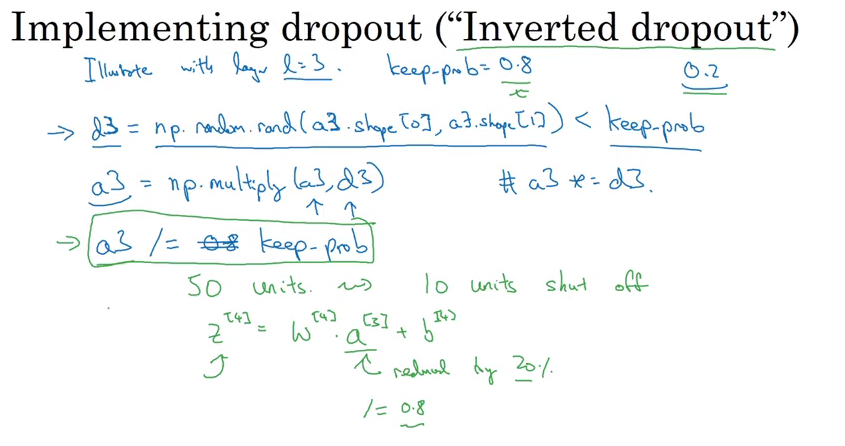 Implementing dropout ("Inverted dropout")
Illustrate with layer l=3. keep-prob= 0.8 0.2
x
→ d3 = np.random.rand(a3.shape[0], a3.shape[1]) < keep-prob
a3 = np.multiply(a3,d3) # a3 *= d3.
↑ ↑
→ a3 /= 0.8 keep-prob
50 units. ⇝ 10 units shut off
z^[4] = W^[4] . a^[3] + b^[4]
reduced by 20%.
/= 0.8